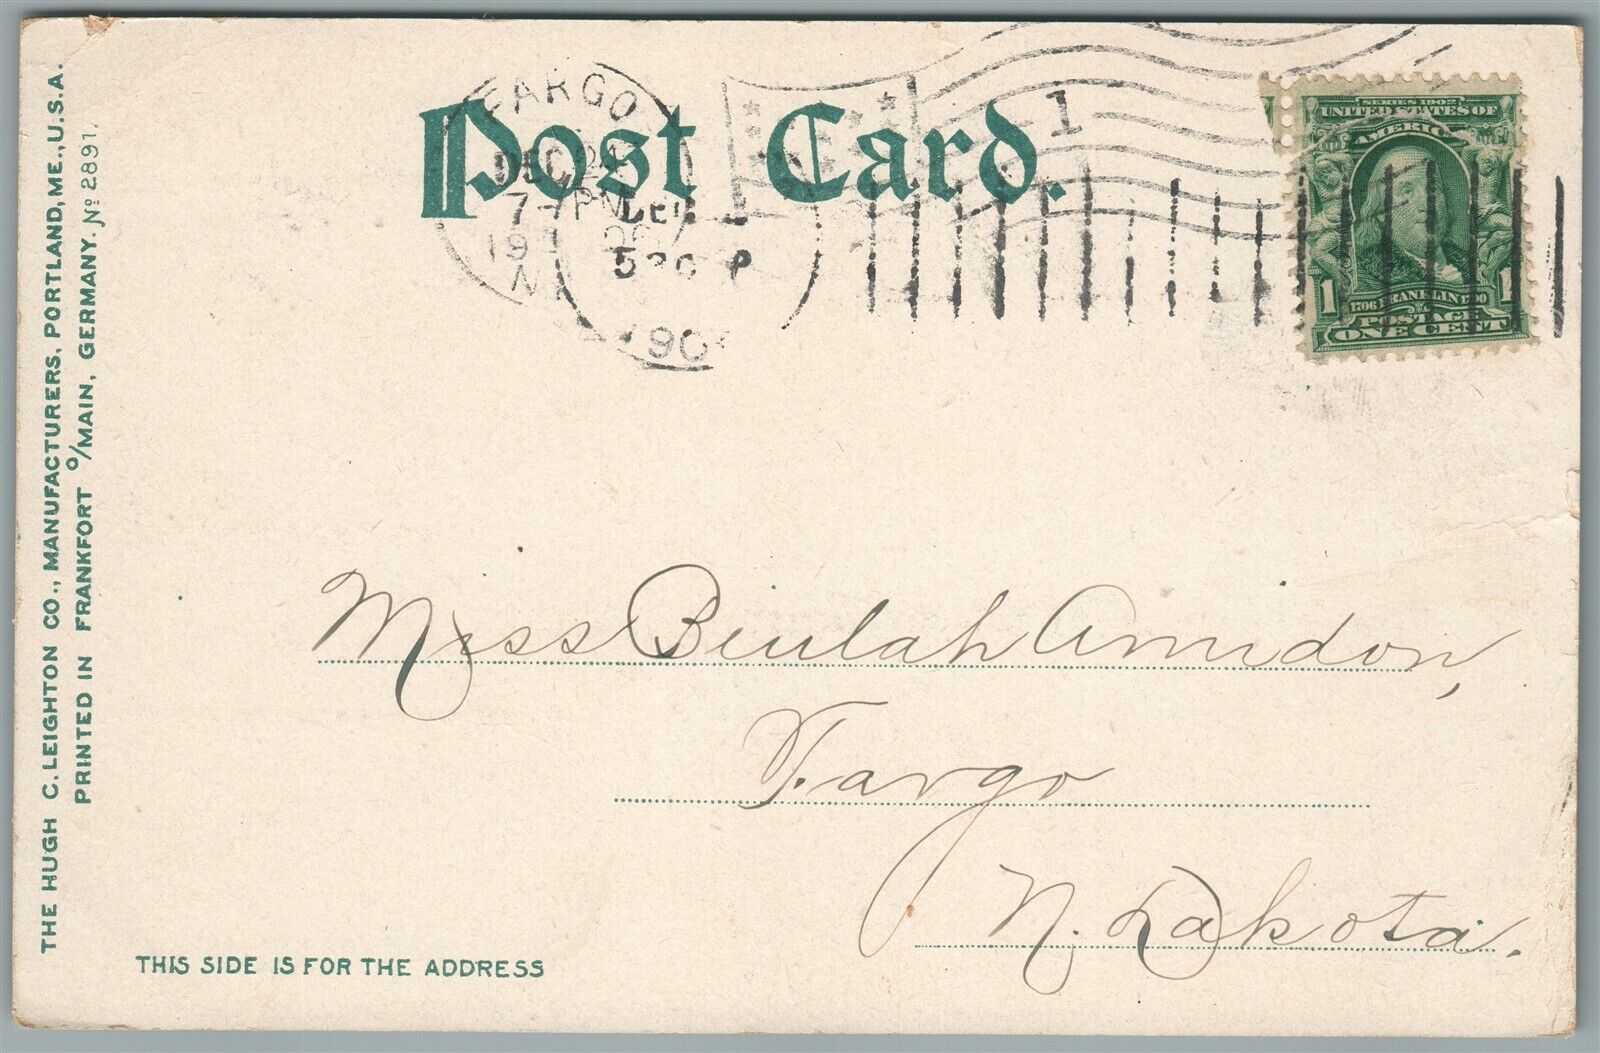 Post Card.
FARGO
DEC 24
7- PM
19
N
DEC
530 P
190
1
SERIES 1902
UNITED STATES OF
AMERICA
1 1
1706 FRANKLIN 1790
POSTAGE
ONE CENT
THE HUGH C. LEIGHTON CO., MANUFACTURERS, PORTLAND, ME., U.S.A.
PRINTED IN FRANKFORT o/MAIN, GERMANY. No 2891.
Miss Beulah Amidon,
Fargo
N. Dakota.
THIS SIDE IS FOR THE ADDRESS